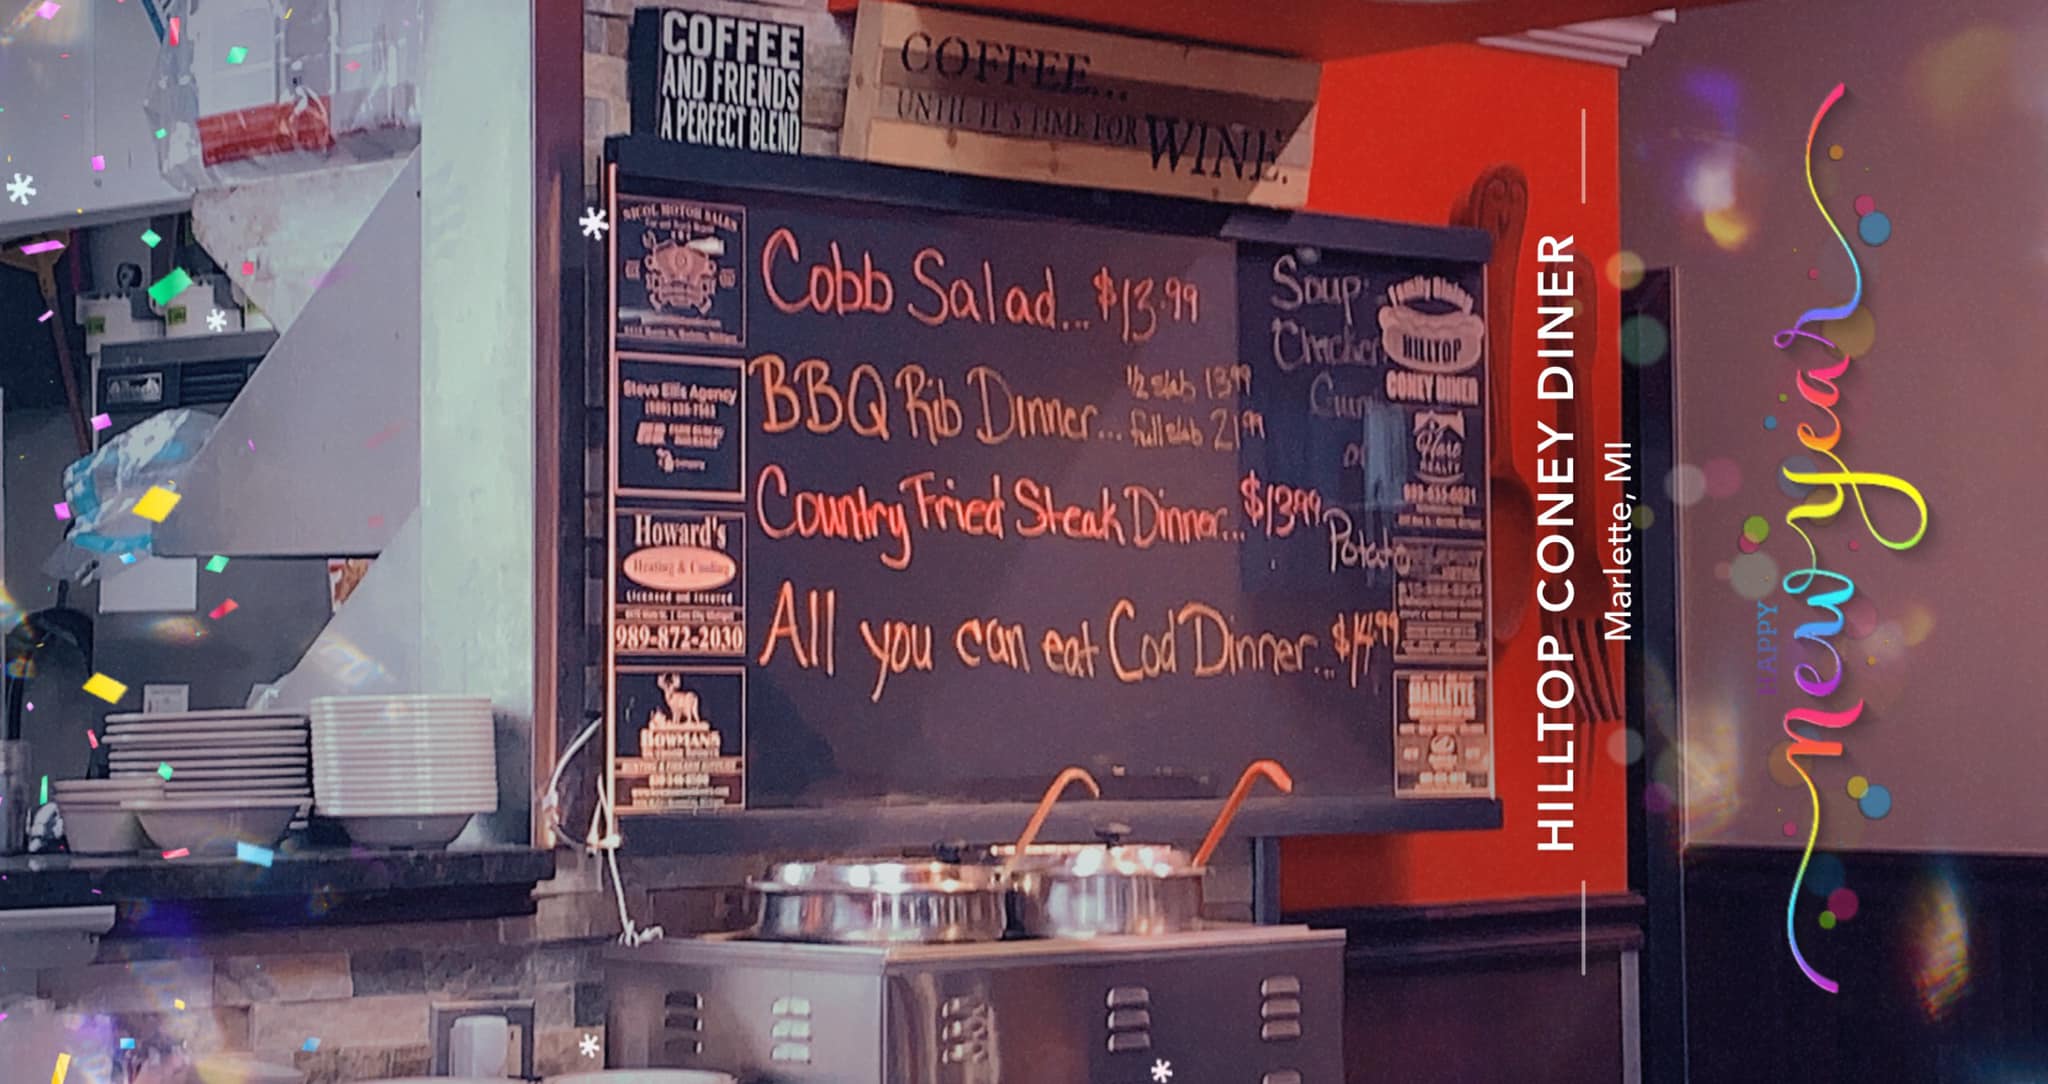 COFFEE
AND FRIENDS
A PERFECT BLEND
COFFEE...
UNTIL IT'S TIME FOR WINE.
NICOL MOTOR SALES
Steve Ellis Agency
Howard's
Heating & Cooling
Licensed and Insured
989-872-2030
BOWMAN'S
Cobb Salad... $13.99
BBQ Rib Dinner... 1/2 slab 13.99
full slab 21.99
Country Fried Steak Dinner... $13.99
All you can eat Cod Dinner... $14.99
Soup
Chicken
Potato
Family Dining
HILLTOP
CONEY DINER
REALTY
MARLETTE
HILLTOP CONEY DINER
Marlette, MI
HAPPY
new year